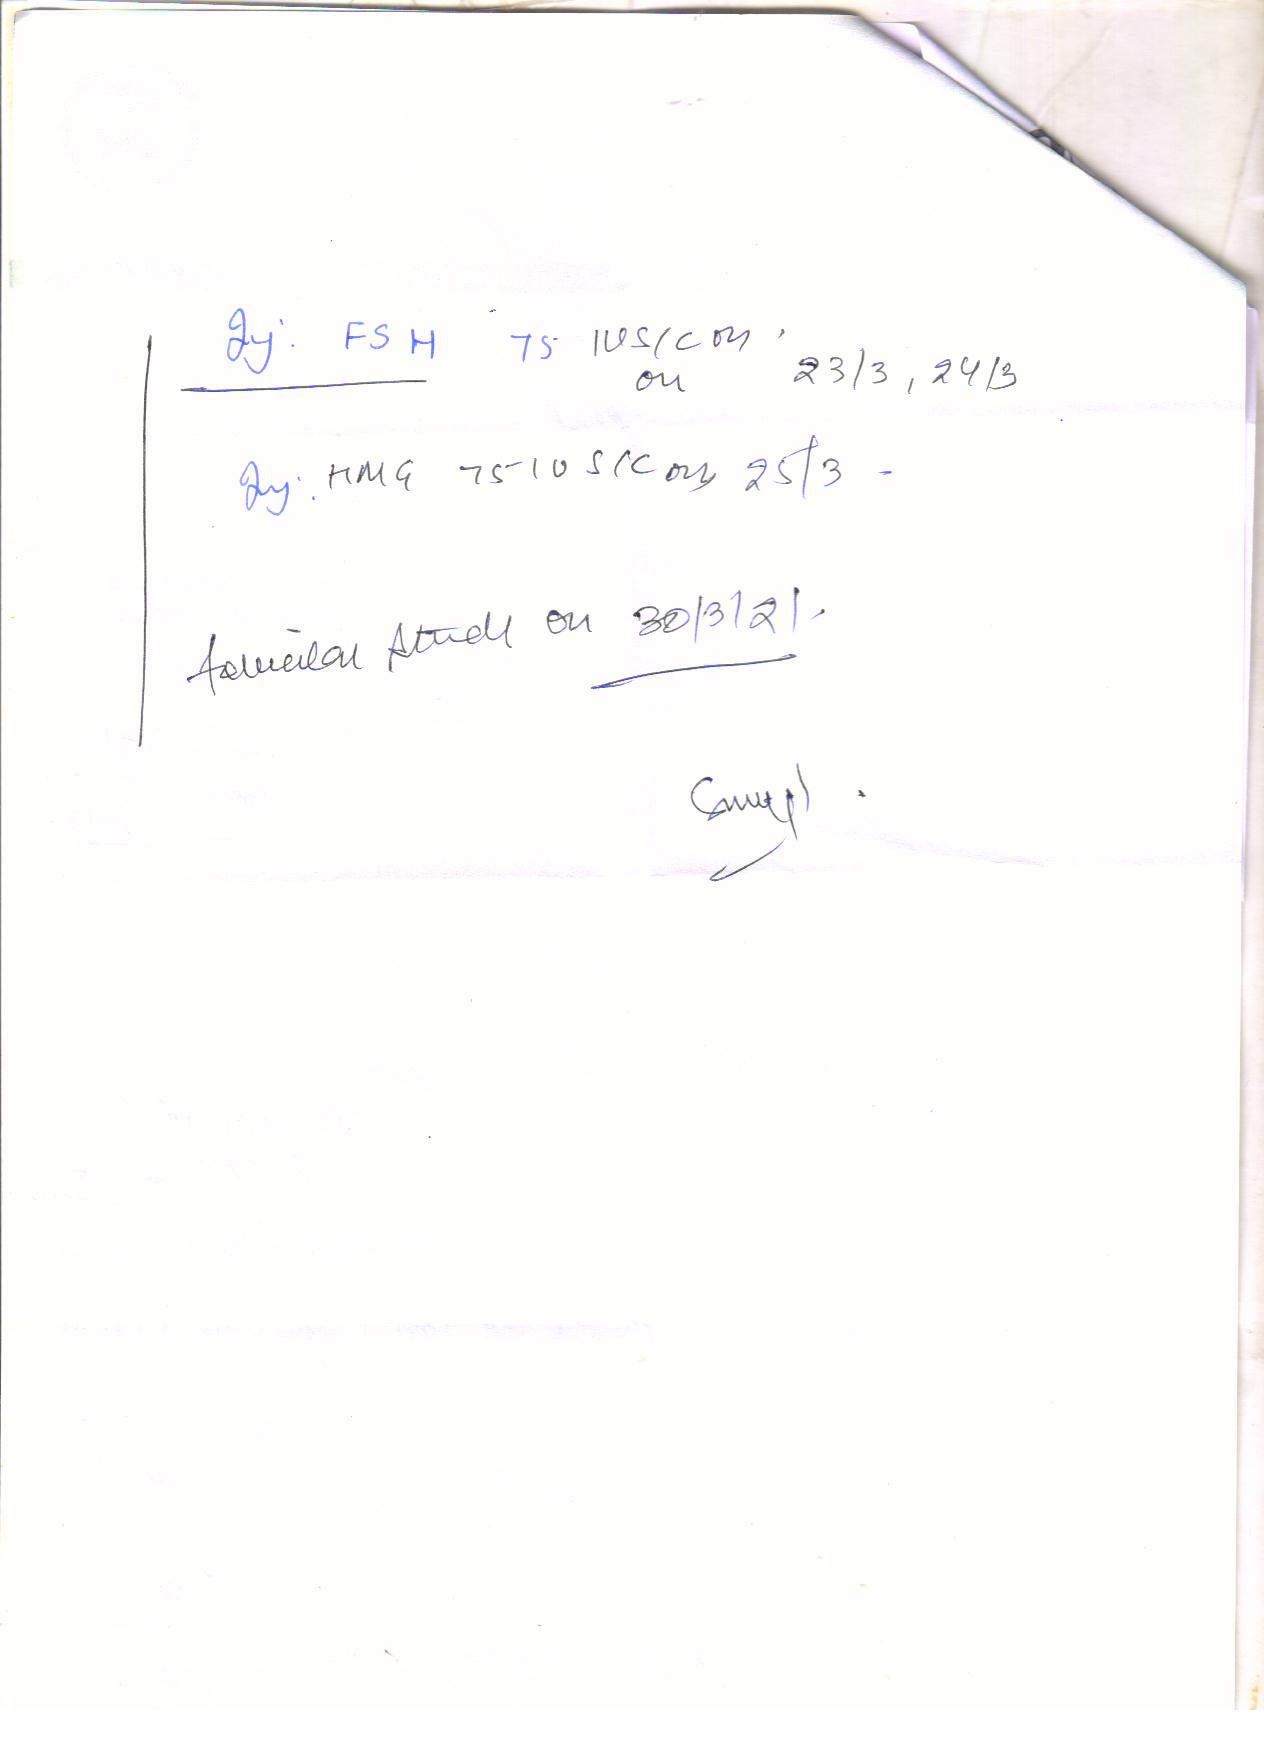 Inj. FSH 75 IU S/C on
on 23/3, 24/3
Inj. HMG 75 IU S/C on 25/3 -
follicular study on 30/3/21.